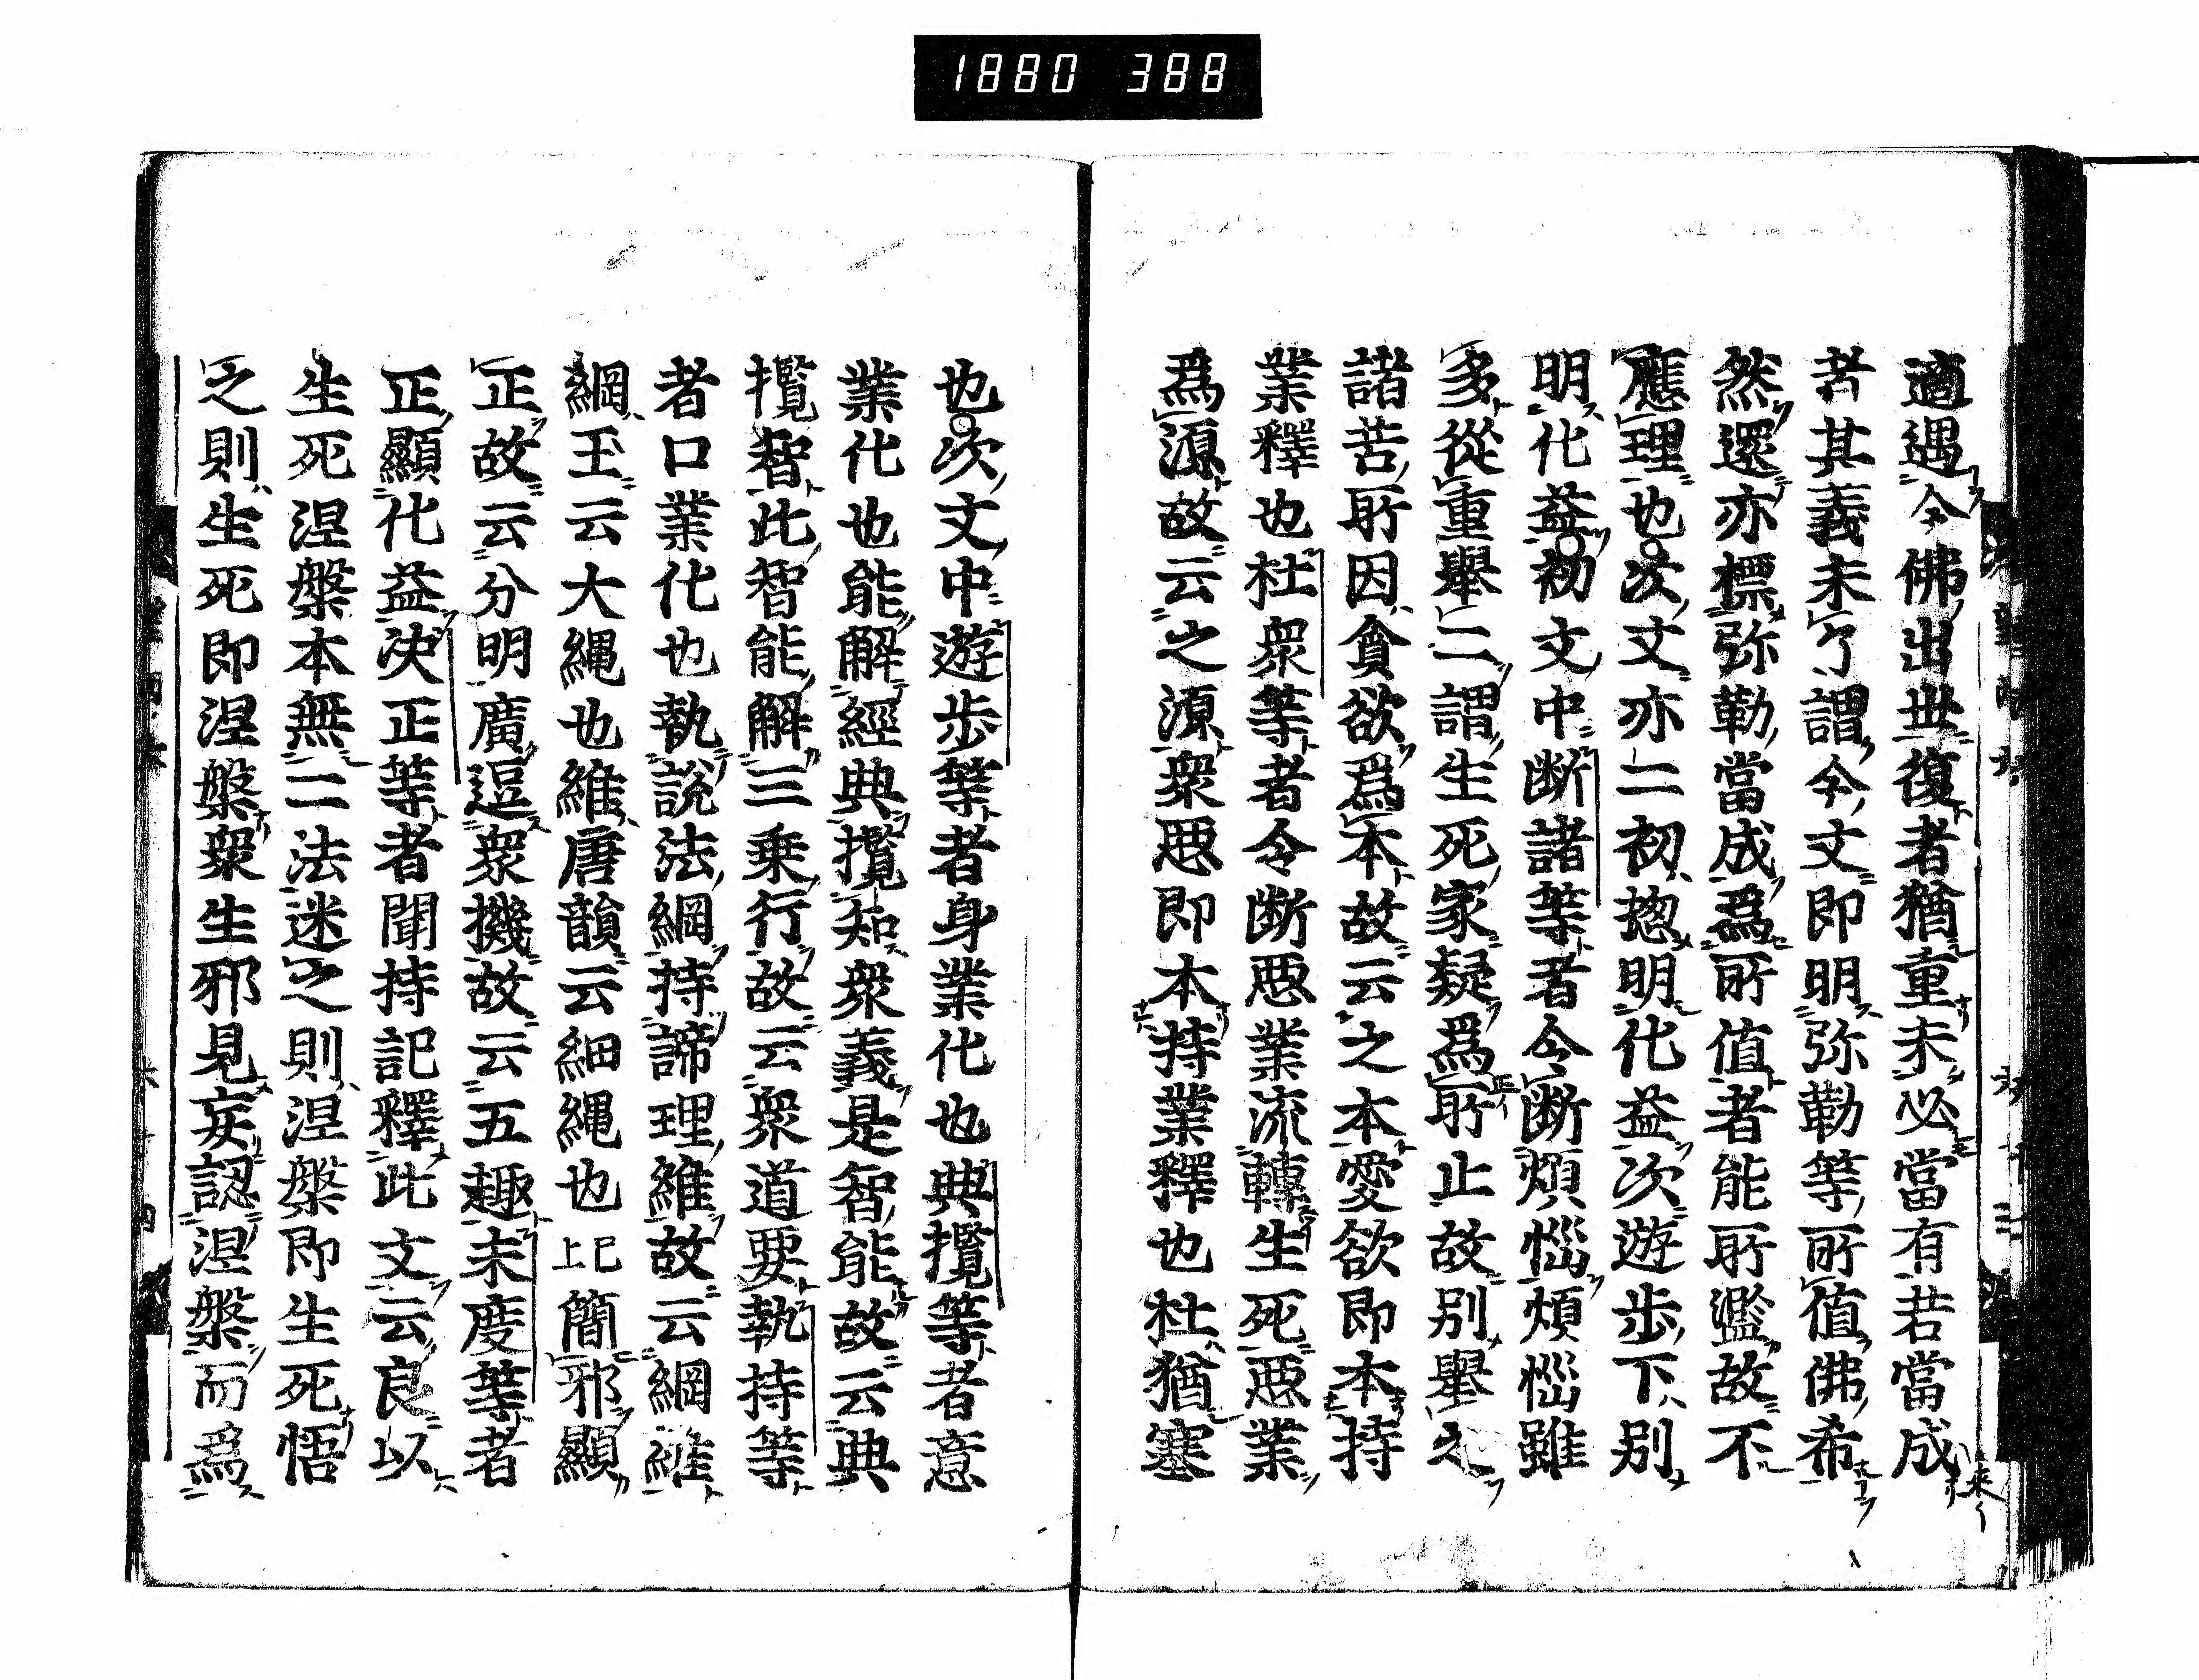 1880 388
適遇今佛出世復者猶重未必當有若當成
者其義未了謂今文即明弥勒等所值佛希
然還亦標弥勒當成爲所值者能所濫故不
應理也次文亦二初揔明化益次遊步下別
明化益初文中断諸等者令断煩惱煩惱雖
多從重舉二謂生死家疑爲所止故別舉之
諸苦所因貪欲爲本故云之本愛欲即本持
業釋也杜衆等者令断悪業流轉生死悪業
爲源故云之源衆悪即本持業釋也杜猶塞
也次文中遊步等者身業化也典攬等者意
業化也能解經典攬知衆義是智能故云典
攬智此智能解三乗行故云衆道要執持等
者口業化也執說法綱持諦理維故云綱維
綱玉云大繩也維唐韻云細繩也已上簡邪顯
正故云分明廣逗衆機故云五趣末度等者
正顯化益决正等者聞持記釋此文云良以
生死涅槃本無二法迷之則涅槃即生死悟
之則生死即涅槃衆生邪見妄認涅槃而爲